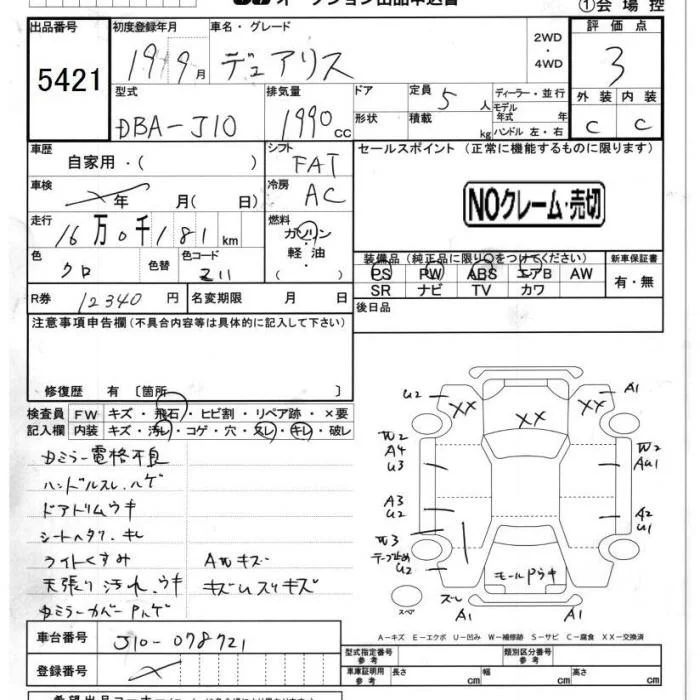 オークション出品申込書
①会場控
出品番号 5421
初度登録年月 19 9月
車名・グレード デュアリス
2WD・4WD
評価点 3
外装 C 内装 C
型式 DBA-J10
排気量 1990cc
ドア形状
定員 5人
積載 kg
ディーラー・並行
モデル年式 年
ハンドル 左・右
車歴 自家用・( )
シフト FAT
セールスポイント (正常に機能するものに限ります)
NOクレーム・売切
車検 年 月( 日)
冷房 AC
走行 16万0千181km
燃料 ガソリン・軽油 ( )
色 クロ 色替 色コード Z11
装備品(純正品に限り○をつけてください) 新車保証書
PS PW ABS エアB AW
SR ナビ TV カワ
有・無
R券 12340円 名変期限 月 日
後日品
注意事項申告欄(不具合内容等は具体的に記入して下さい)
修復歴 有 〔箇所 〕
検査員記入欄
FW キズ・飛石・ヒビ割・リペア跡・×要
内装 キズ・汚レ・コゲ・穴・スレ・キレ・破レ
Dミラー電格不良
ハンドルスレ.ハゲ
ドアトリムウキ
シートヘタリ.キレ
ライトくすみ AWキズ
天張り汚れ.ウキ キズUスリキズ
DミラーカバーPハゲ
U2 XX XX XX A1
W2
A4
U3
W2
AU1
A3
U2
A2
U1
W3
テープ止め
U2
モールPウキ
ズレ
スペア
A1 A1
A-キズ E-エクボ U-凹み W-補修跡 S-サビ C-腐食 XX-交換済
車台番号 J10-078721
登録番号
型式指定番号 参考
類別区分番号 参考
車庫証明用 参考 長さ cm 幅 cm 高さ cm